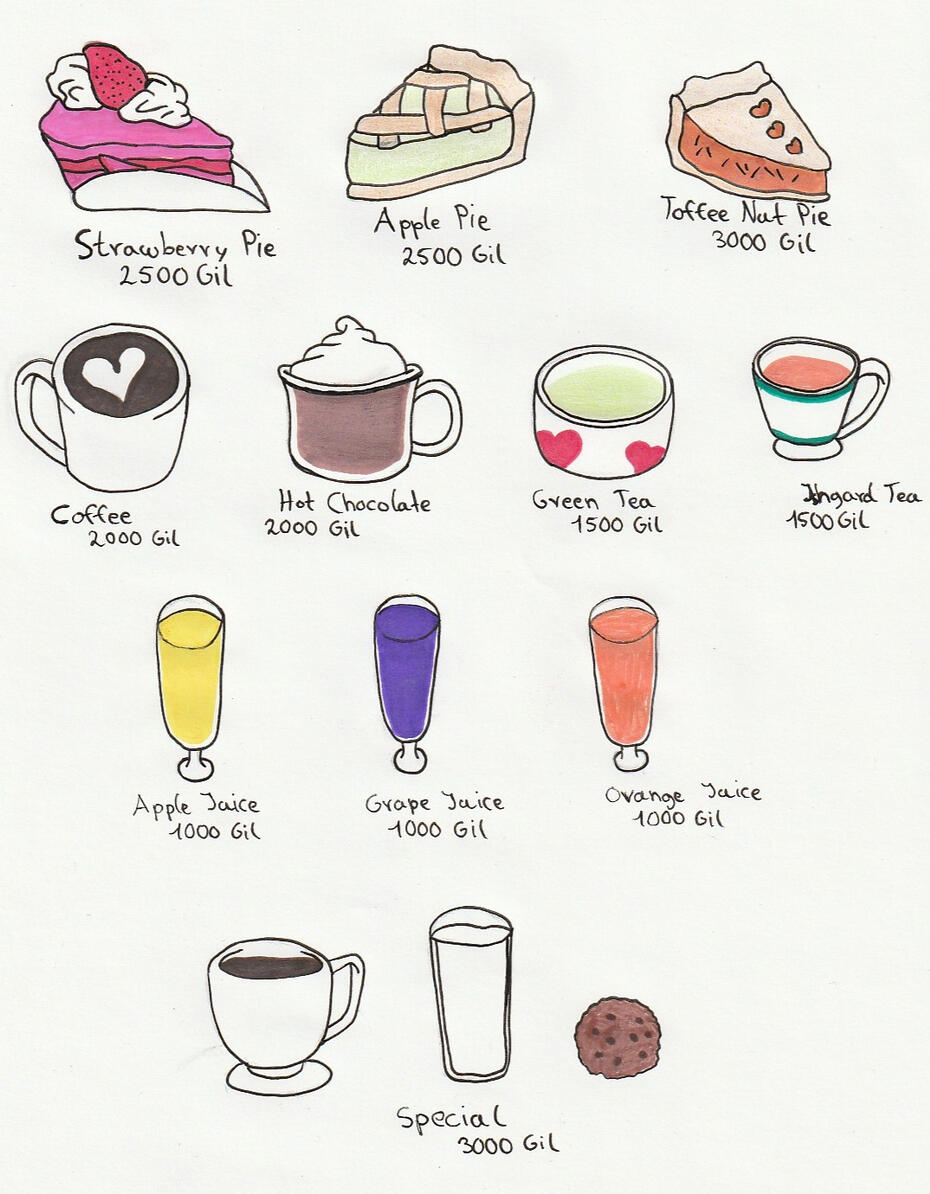 Strawberry Pie
2500 Gil
Apple Pie
2500 Gil
Toffee Nut Pie
3000 Gil
Coffee
2000 Gil
Hot Chocolate
2000 Gil
Green Tea
1500 Gil
Ishgard Tea
1500 Gil
Apple Juice
1000 Gil
Grape Juice
1000 Gil
Orange Juice
1000 Gil
Special
3000 Gil